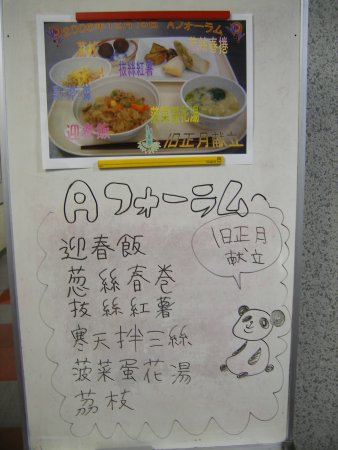 Aフォーラム
荔枝
葱絲春捲
抜絲紅薯
菠菜蛋花湯
迎春飯
旧正月献立
Aフォーラム
迎春飯
葱絲春巻
抜絲紅薯
寒天拌三絲
菠菜蛋花湯
荔枝
旧正月
献立